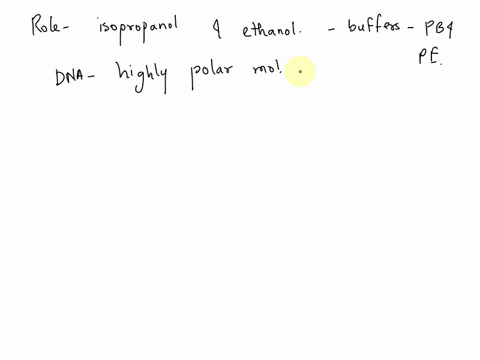 Role- isopropanol & ethanol. - buffers - PB &
PE.
DNA- highly polar mol.